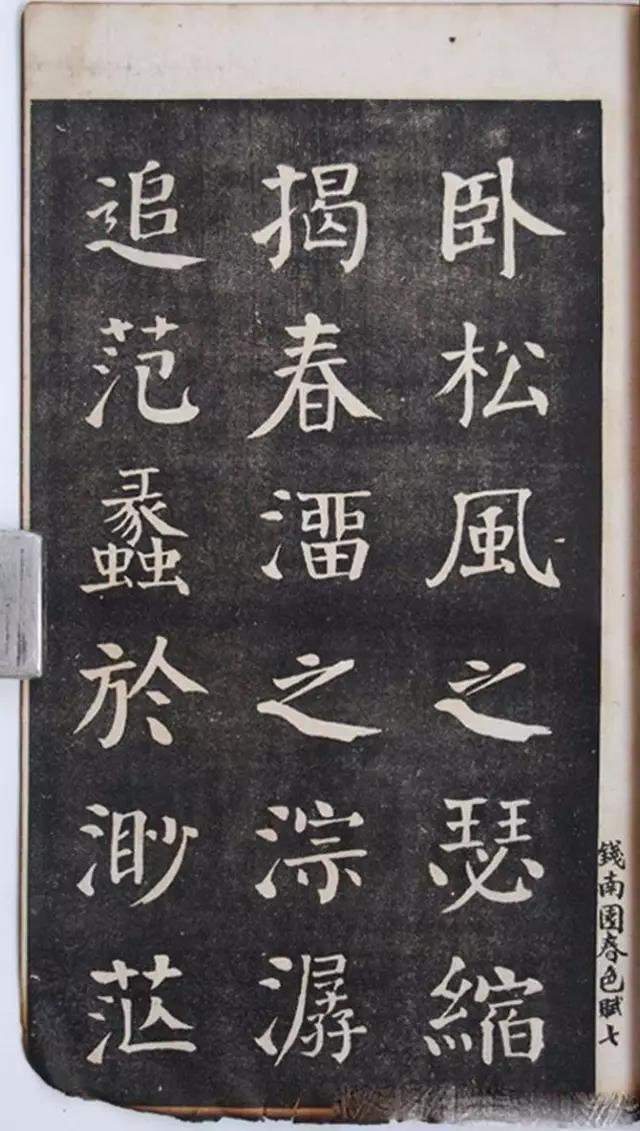 卧松風之瑟縮
揭春溜之淙潺
追范蠡於渺茫
錢南園春色賦七